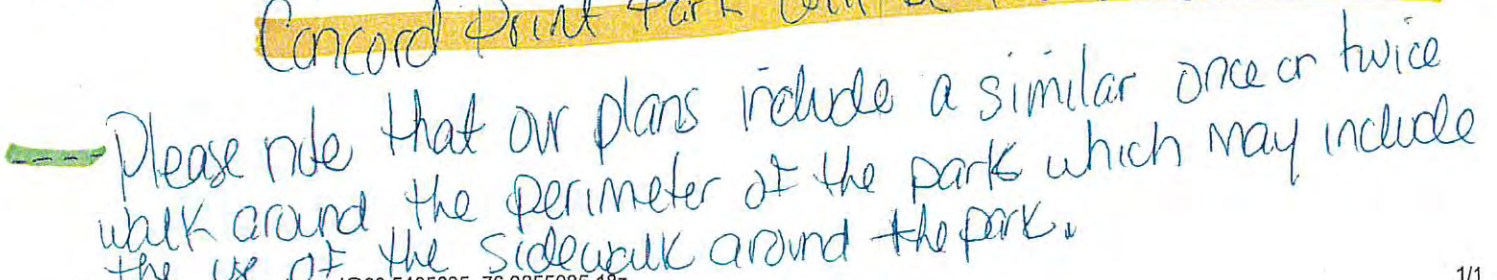 Concord Point Park will be
---- Please note that our plans include a similar once or twice
walk around the perimeter of the park which may include
the use of the sidewalk around the park.
1/1